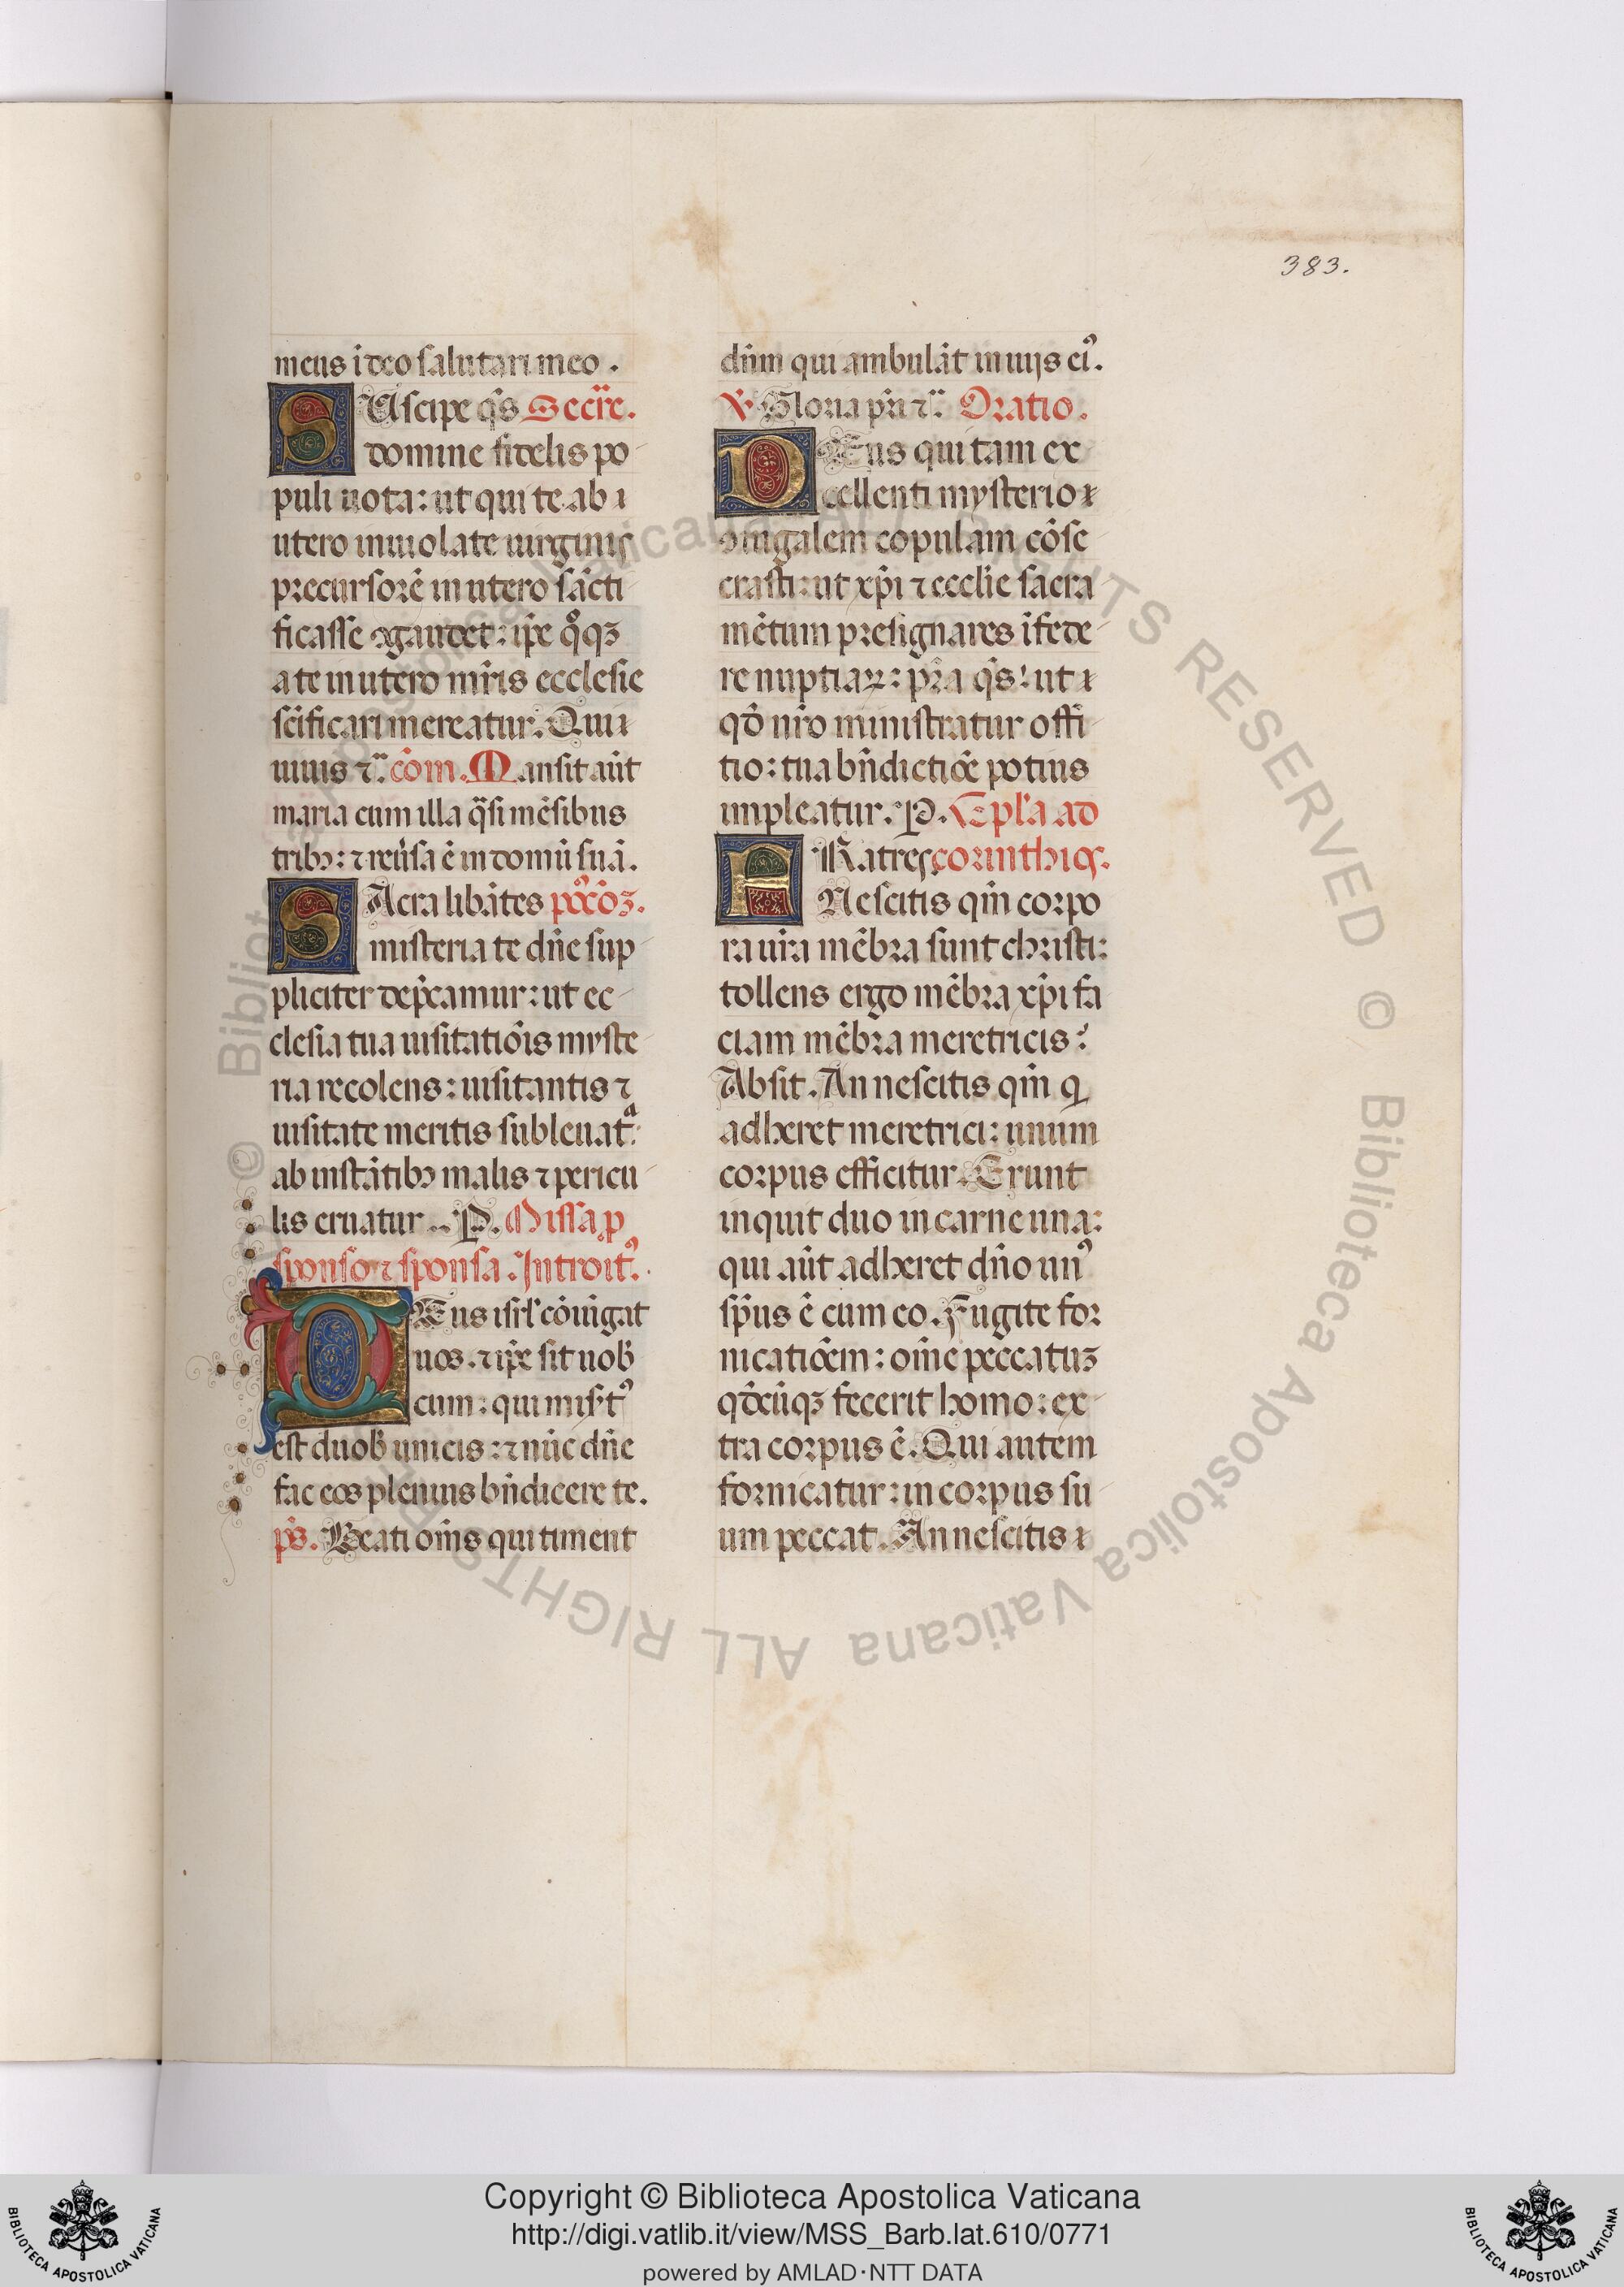 383.
meus i deo salutari meo.
SUscipe q̄s Secr̄e.
domine fidelis po
puli uota: ut qui te ab ı
utero inuiolate uirginis
precursorē in utero sācti
ficasse ꝯgaudet: ip̄e qͦqꝫ
a te in utero mr̄is ecclesie
scīficari mereatur. Qui ı
uiuis ⁊c̄. cōm. Mansit aūt
maria cum illa q̄si mēsibus
tribꝫ: ⁊ reūsa ē in domū suā.
SAcra libātes poꝯōꝫ.
misteria te dn̄e sup
pliciter dep̄camur: ut ec
clesia tua uisitatiōis myste
ria recolens: uisitantis ⁊
uisitate meritis subleuatᵃ:
ab instātibꝫ malis ⁊ pericu
lis eruatur. P. Missa ꝓ
sponso ⁊ sponsa. Introitꝰ.
DEus isrl̄ cōiūgat
uos. ⁊ ip̄e sit uob̄
cum: qui mis̄tꝰ
est duob̄ unicis: ⁊ nūc dn̄e
fac eos plenius bn̄dicere te.
ps̄. Beati om̄s qui timent
dn̄m qui ambulāt in uijs eiꝰ.
℣. Gloria pr̄i ⁊c̄. Oratio.
DEus qui tam ex
cellenti mysterio ı
ꝯiugalem copulam cōse
crasti: ut xp̄i ⁊ ecclīe sacra
mētum presignares ī fede
re nuptiaꝝ: pr̄a q̄s: ut ı
qd̄ nr̄o ministratur offi
tio: tua bn̄dictiōe potius
impleatur. P. Epl̄a ad
FRatres corinthios.
Nescitis qm̄ corpo
ra ur̄a mēbra sunt christi:
tollens ergo mēbra xp̄i fa
ciam mēbra meretricis?
Absit. An nescitis qm̄ q̄
adheret meretrici: unum
corpus efficitur. Erunt
inquit duo in carne una:
qui aūt adheret dn̄o unꝰ
sp̄us ē cum eo. Fugite for
nicatiōem: om̄e peccatuꝫ
qd̄cūqꝫ fecerit homo: ex
tra corpus ē. Qui autem
fornicatur: in corpus su
um peccat. An nescitis ı
© Biblioteca Apostolica Vaticana ALL RIGHTS RESERVED © Biblioteca Apostolica Vaticana ALL RIGHTS
BIBLIOTECA APOSTOLICA VATICANA
Copyright © Biblioteca Apostolica Vaticana
http://digi.vatlib.it/view/MSS_Barb.lat.610/0771
powered by AMLAD·NTT DATA
BIBLIOTECA APOSTOLICA VATICANA